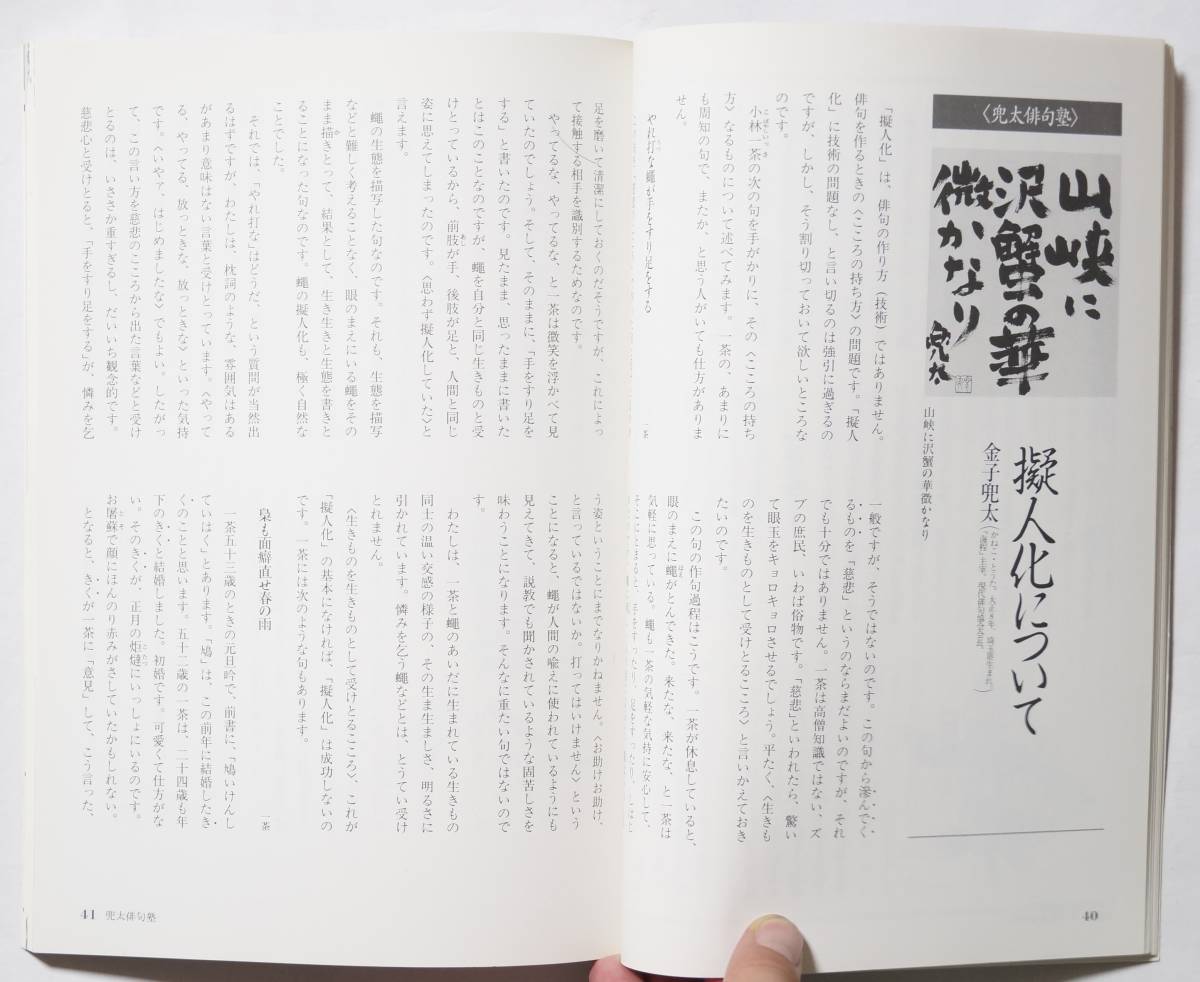 〈兜太俳句塾〉
山峡に
沢蟹の華
微かなり
兜太
山峡に沢蟹の華微かなり
擬人化について
金子兜太
「擬人化」は、俳句の作り方（技術）ではありません。
俳句を作るときの〈こころの持ち方〉の問題です。「擬人
化」に技術の問題なし、と言い切るのは強引に過ぎるの
ですが、しかし、そう割り切っておいて欲しいところな
のです。
小林一茶の次の句を手がかりに、その〈こころの持ち
方〉なるものについて述べてみます。一茶の、あまりに
も周知の句で、またか、と思う人がいても仕方がありま
せん。
やれ打な蠅が手をすり足をする
一茶
一般ですが、そうではないのです。この句から滲んでく
るものを「慈悲」というのならまだよいのですが、それ
でも十分ではありません。一茶は高僧知識ではない、ズ
ブの庶民、いわば俗物です。「慈悲」といわれたら、驚い
て眼玉をキョロキョロさせるでしょう。平たく、〈生きも
のを生きものとして受けとるこころ〉と言いかえておき
たいのです。
この句の作句過程はこうです。一茶が休息していると、
眼のまえに蠅がとんできた。来たな、来たな、と一茶は
気軽に思っている。蠅も一茶の気軽な気持に安心して、
40
足を磨いて清潔にしておくのだそうですが、これによっ
て接触する相手を識別するためなのです。
やってるな、やってるな、と一茶は微笑を浮かべて見
ていたのでしょう。そして、そのままに、「手をすり足を
する」と書いたのです。見たまま、思ったままに書いた
とはこのことなのですが、蠅を自分と同じ生きものと受
けとっているから、前肢が手、後肢が足と、人間と同じ
姿に思えてしまったのです。〈思わず擬人化していた〉と
言えます。
蠅の生態を描写した句なのです。それも、生態を描写
などと難しく考えることなく、眼のまえにいる蠅をその
まま描きとって、結果として、生き生きと生態を書きと
ることになった句なのです。蠅の擬人化も、極く自然な
ことでした。
それでは、「やれ打な」はどうだ、という質問が当然出
るはずですが、わたしは、枕詞のような、雰囲気はある
があまり意味はない言葉と受けとっています。〈やって
る、やってる、放っときな、放っときな〉といった気持
です。〈いやァ、はじめましたな〉でもよい。したがっ
て、この言い方を慈悲のこころから出た言葉などと受け
とるのは、いささか重すぎるし、だいいち観念的です。
慈悲心と受けとると、「手をすり足をする」が、憐みを乞
う姿ということにまでなりかねません。〈お助けお助け、
と言っているではないか。打ってはいけません〉という
ことになると、蠅が人間の喩えに使われているようにも
見えてきて、説教でも聞かされているような固苦しさを
味わうことになります。そんなに重たい句ではないので
す。
わたしは、一茶と蠅のあいだに生まれている生きもの
同士の温い交感の様子の、その生ま生ましさ、明るさに
引かれています。憐みを乞う蠅などとは、とうてい受け
とれません。
〈生きものを生きものとして受けとるこころ〉、これが
「擬人化」の基本になければ、「擬人化」は成功しないの
です。一茶には次のような句もあります。
梟も面癖直せ春の雨
一茶
一茶五十三歳のときの元日吟で、前書に、「鳩いけんし
ていはく」とあります。「鳩」は、この前年に結婚したき
くのことと思います。五十二歳の一茶は、二十四歳も年
下のきくと結婚しました。初婚です。可愛くて仕方がな
い。そのきくが、正月の炬燵にいっしょにいるのです。
お屠蘇で顔にほんのり赤みがさしていたかもしれない。
となると、きくが一茶に「意見」して、こう言った、
41 兜太俳句塾